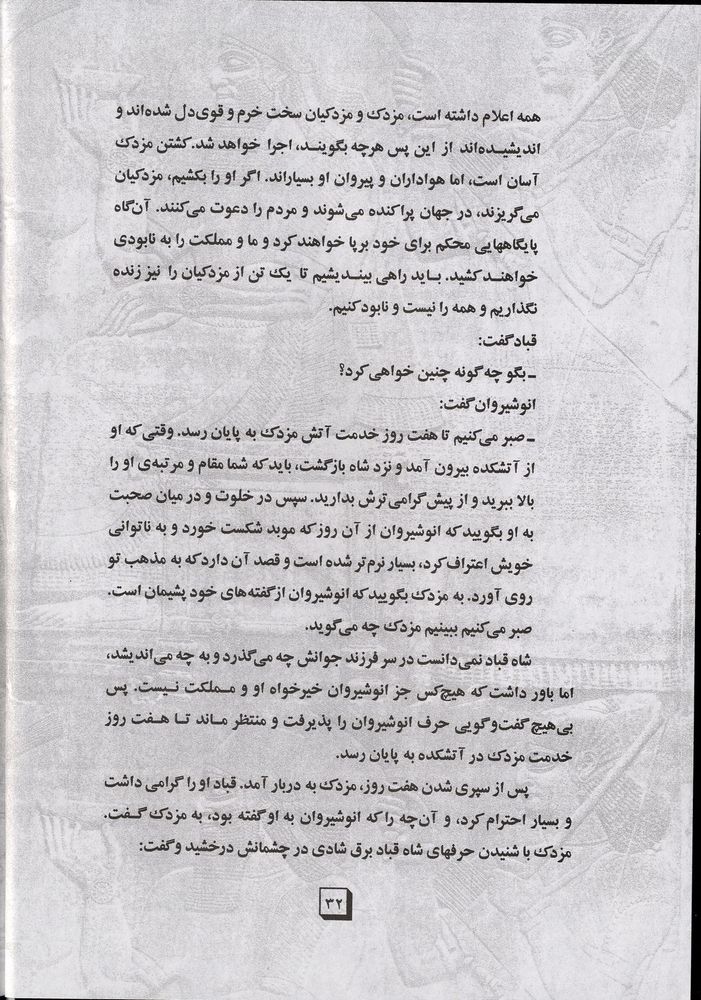 همه اعلام داشته است، مزدک و مزدکیان سخت خرم و قوی‌دل شده‌اند و
اندیشیده‌اند از این پس هرچه بگویند، اجرا خواهد شد. کشتن مزدک
آسان است، اما هواداران و پیروان او بسیاراند. اگر او را بکشیم، مزدکیان
می‌گریزند، در جهان پراکنده می‌شوند و مردم را دعوت می‌کنند. آن‌گاه
پایگاههایی محکم برای خود برپا خواهند کرد و ما و مملکت را به نابودی
خواهند کشید. باید راهی بیندیشیم تا یک تن از مزدکیان را نیز زنده
نگذاریم و همه را نیست و نابود کنیم.
قباد گفت:
ـ بگو چه گونه چنین خواهی کرد؟
انوشیروان گفت:
ـ صبر می‌کنیم تا هفت روز خدمت آتش مزدک به پایان رسد. وقتی که او
از آتشکده بیرون آمد و نزد شاه بازگشت، باید که شما مقام و مرتبه‌ی او را
بالا ببرید و از پیش گرامی‌ترش بدارید. سپس در خلوت و در میان صحبت
به او بگویید که انوشیروان از آن روز که موبد شکست خورد و به ناتوانی
خویش اعتراف کرد، بسیار نرم‌تر شده است و قصد آن دارد که به مذهب تو
روی آورد. به مزدک بگویید که انوشیروان از گفته‌های خود پشیمان است.
صبر می‌کنیم ببینیم مزدک چه می‌گوید.
شاه قباد نمی‌دانست در سر فرزند جوانش چه می‌گذرد و به چه می‌اندیشد،
اما باور داشت که هیچ‌کس جز انوشیروان خیرخواه او و مملکت نیست. پس
بی‌هیچ گفت‌وگویی حرف انوشیروان را پذیرفت و منتظر ماند تا هفت روز
خدمت مزدک در آتشکده به پایان رسد.
پس از سپری شدن هفت روز، مزدک به دربار آمد. قباد او را گرامی داشت
و بسیار احترام کرد، و آن‌چه را که انوشیروان به او گفته بود، به مزدک گفت.
مزدک با شنیدن حرفهای شاه قباد برق شادی در چشمانش درخشید و گفت:
۳۲